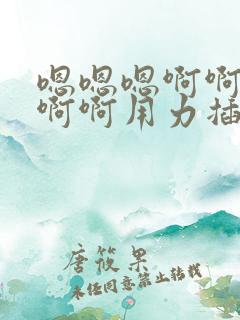 嗯嗯嗯啊啊
啊啊用力插
唐筱果
未经同意禁止转载